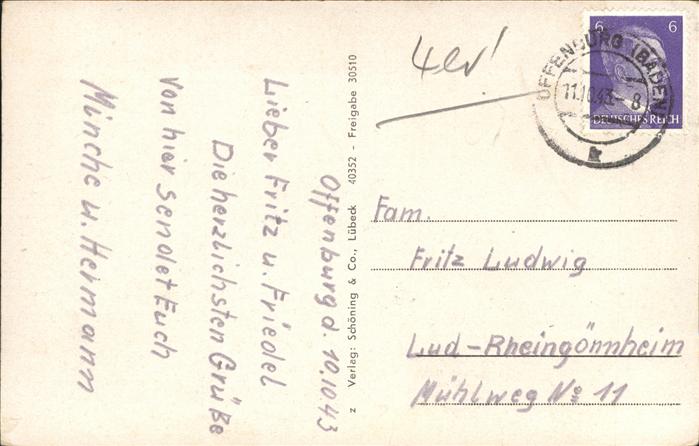 Offenburg d. 10.10.43
Lieber Fritz u. Friedel
Die herzlichsten Grüße
von hier sendet Euch
Minche u. Hermann
z Verlag: Schöning & Co., Lübeck 40352 - Freigabe 30510
6 6
DEUTSCHES REICH
OFFENBURG (BADEN)
11.10.43 8
Fam.
Fritz Ludwig
Lud-Rheingönnheim
Mühlweg No 11